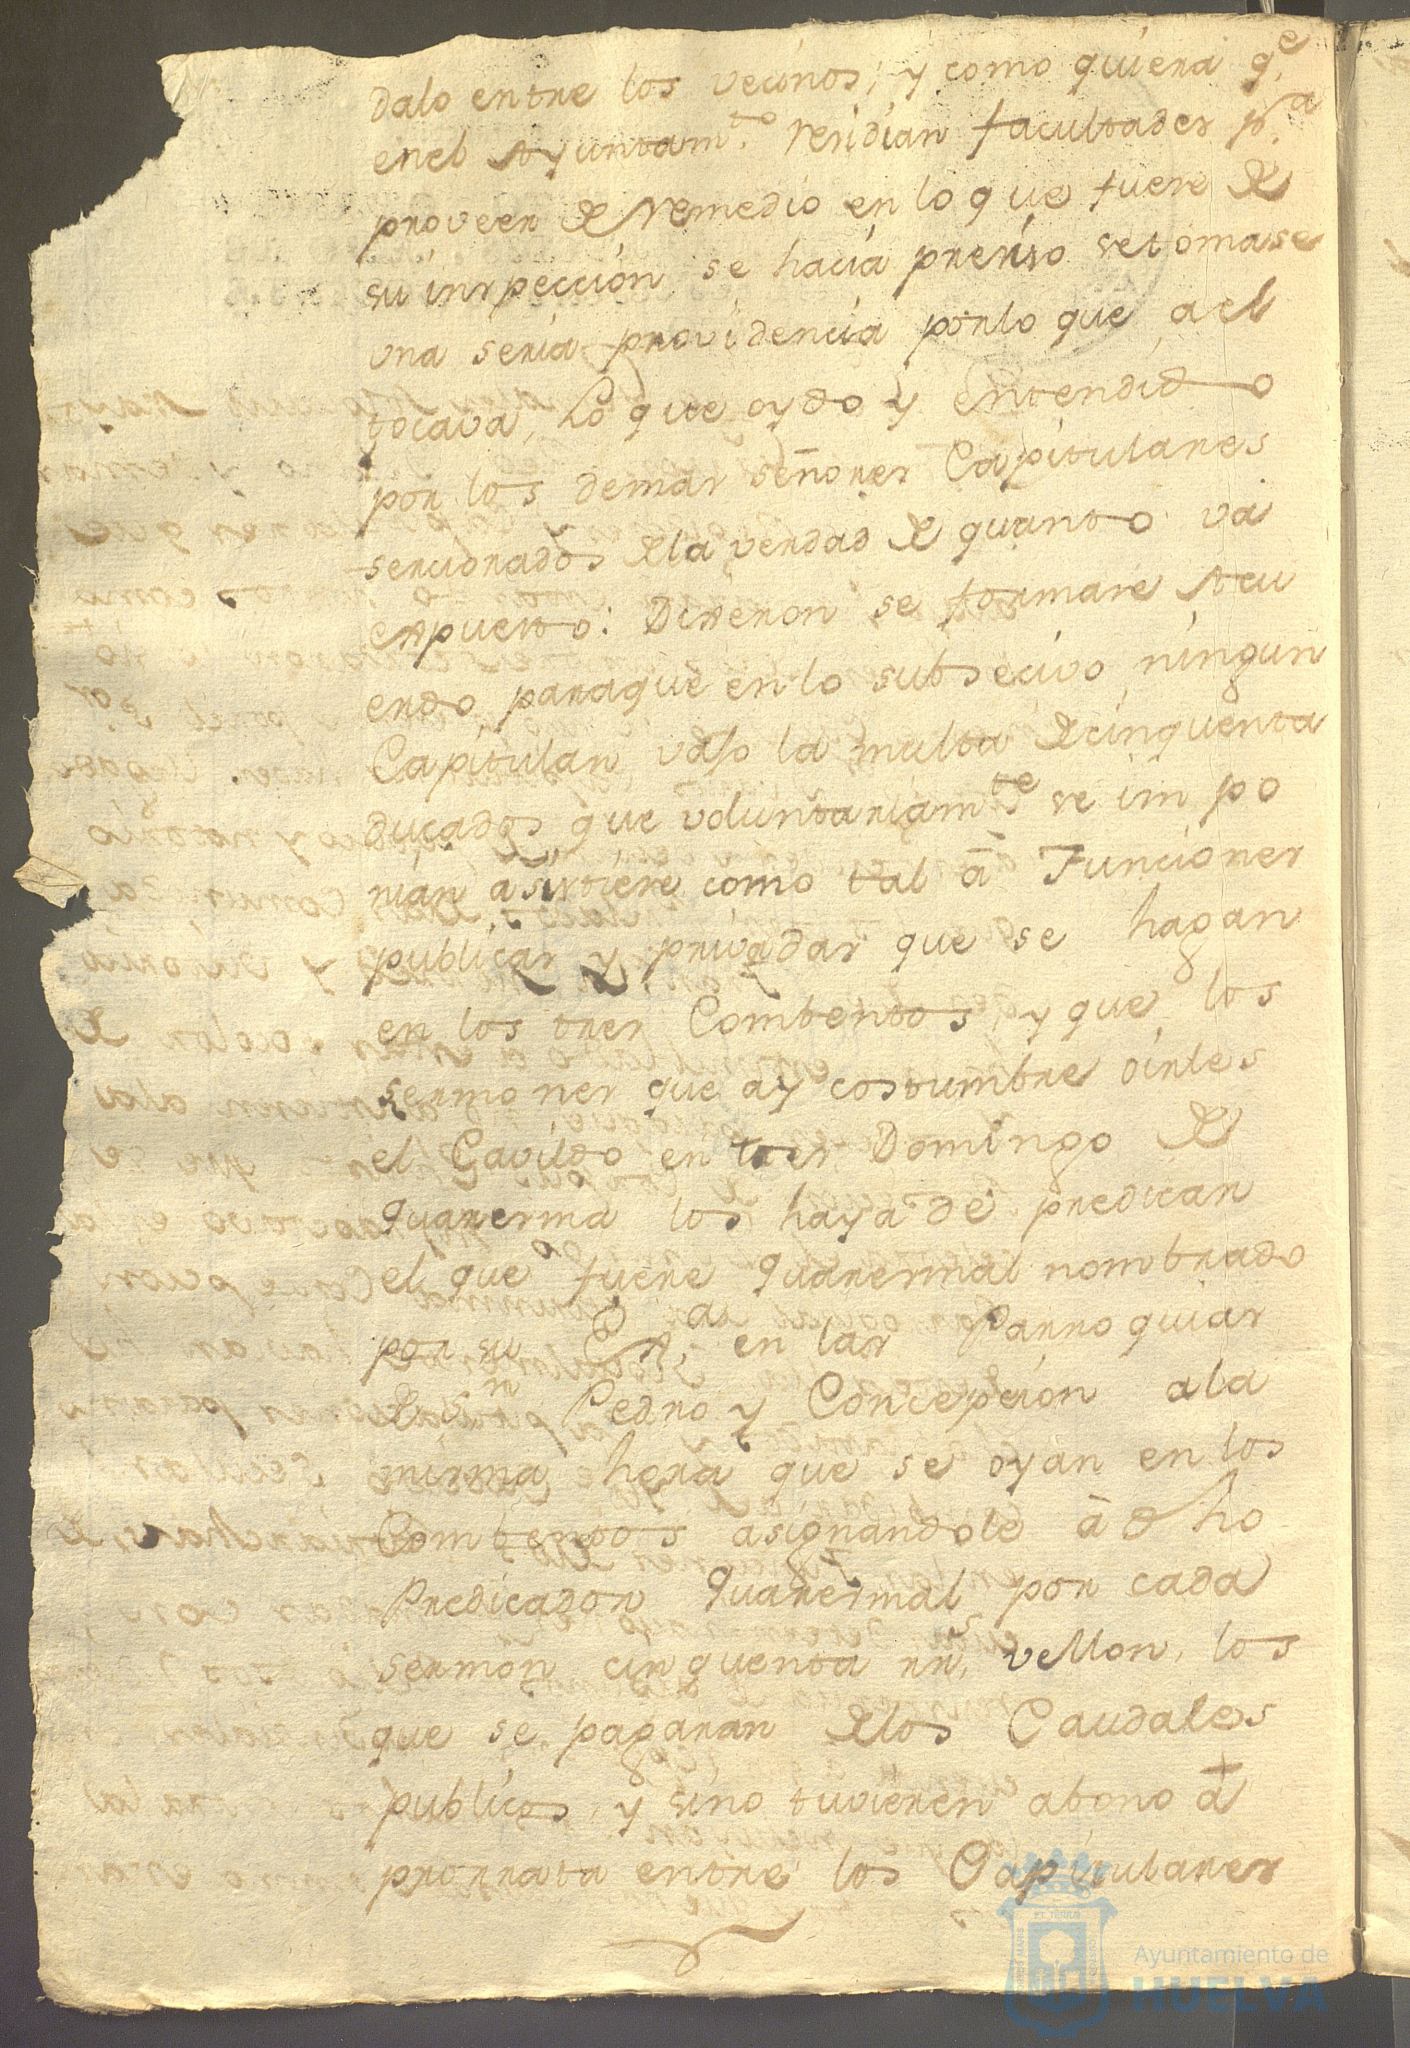 dalo entre los vecinos; y como quiera q.e
en el Ayuntam.to residian facultades p.a
proveer de remedio en lo que fuere de
su inspección se hacia preciso se tomase
una seria providencia por lo que a el
tocava, lo que oydo y entendido
por los demas señores Capitulares
sercionados de la verdad de quanto va
expuesto: Dixeron se formare Acu
erdo para que en lo subsecivo ningun
Capitular vajo la multa de cinquenta
ducados que voluntariam.te se impo
nian asistiere como tal à Funciones
publicas y privadas que se hagan
en los tres Combentos, y que los
sermones que ay costumbre oirles
el Cavildo en tres Domingo de
Quaresma los haya de predicar
el que fuere Quaresmal nombrado
por su en las Parroquias
de S.n Pedro y Concepcion a la
misma hora que se oyan en los
Combentos asignandole à dho
Predicador Quaresmal por cada
sermon cinquenta rr.s vellon, los
que se pagaran de los Caudales
publicos, y sino tuvieren abono à
prorrata entre los Capitulares
Ayuntamiento de
HUELVA